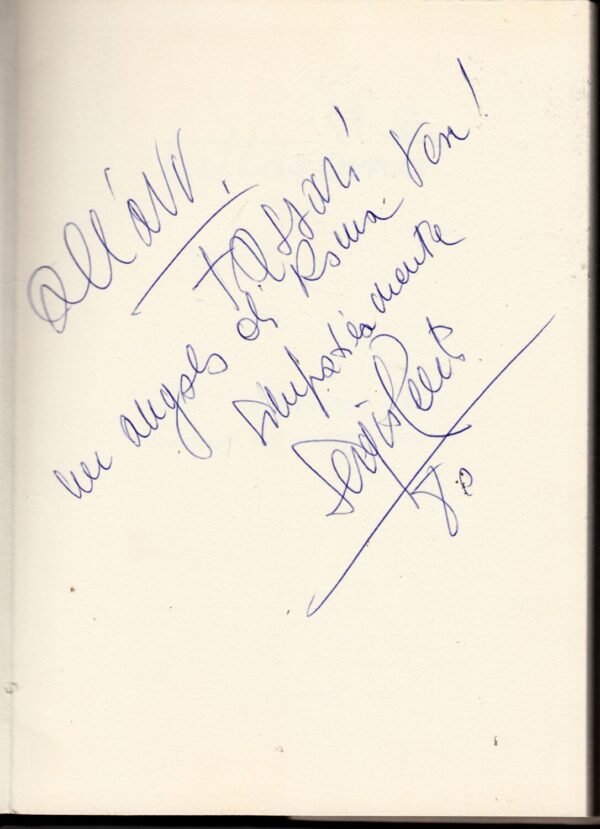 all'avv.
Tassari
un angolo di Roma vera!
simpaticamente
Sergio
80